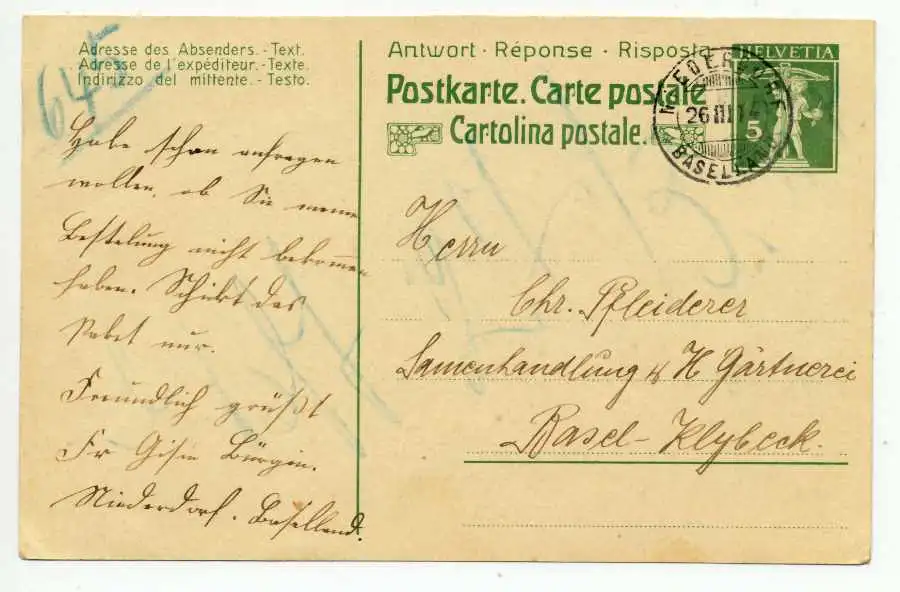 Adresse des Absenders.-Text.
Adresse de l'expéditeur.-Texte.
Indirizzo del mittente.-Testo.
645
Habe schon anfragen
wollen, ob Sie meine
Bestelung nicht bekommen
haben. Schickt das
Paket nur.
Freundlich grüßt
Fr Gisin Bürgin.
Niederdorf. Baselland.
Antwort · Réponse · Risposta
Postkarte. Carte postale
Cartolina postale.
HELVETIA
5
NIEDERDORF
26 III
BASELLAND
Herrn
Chr. Pfleiderer
Samenhandlung & H Gärtnerei
Basel-Klybeck.